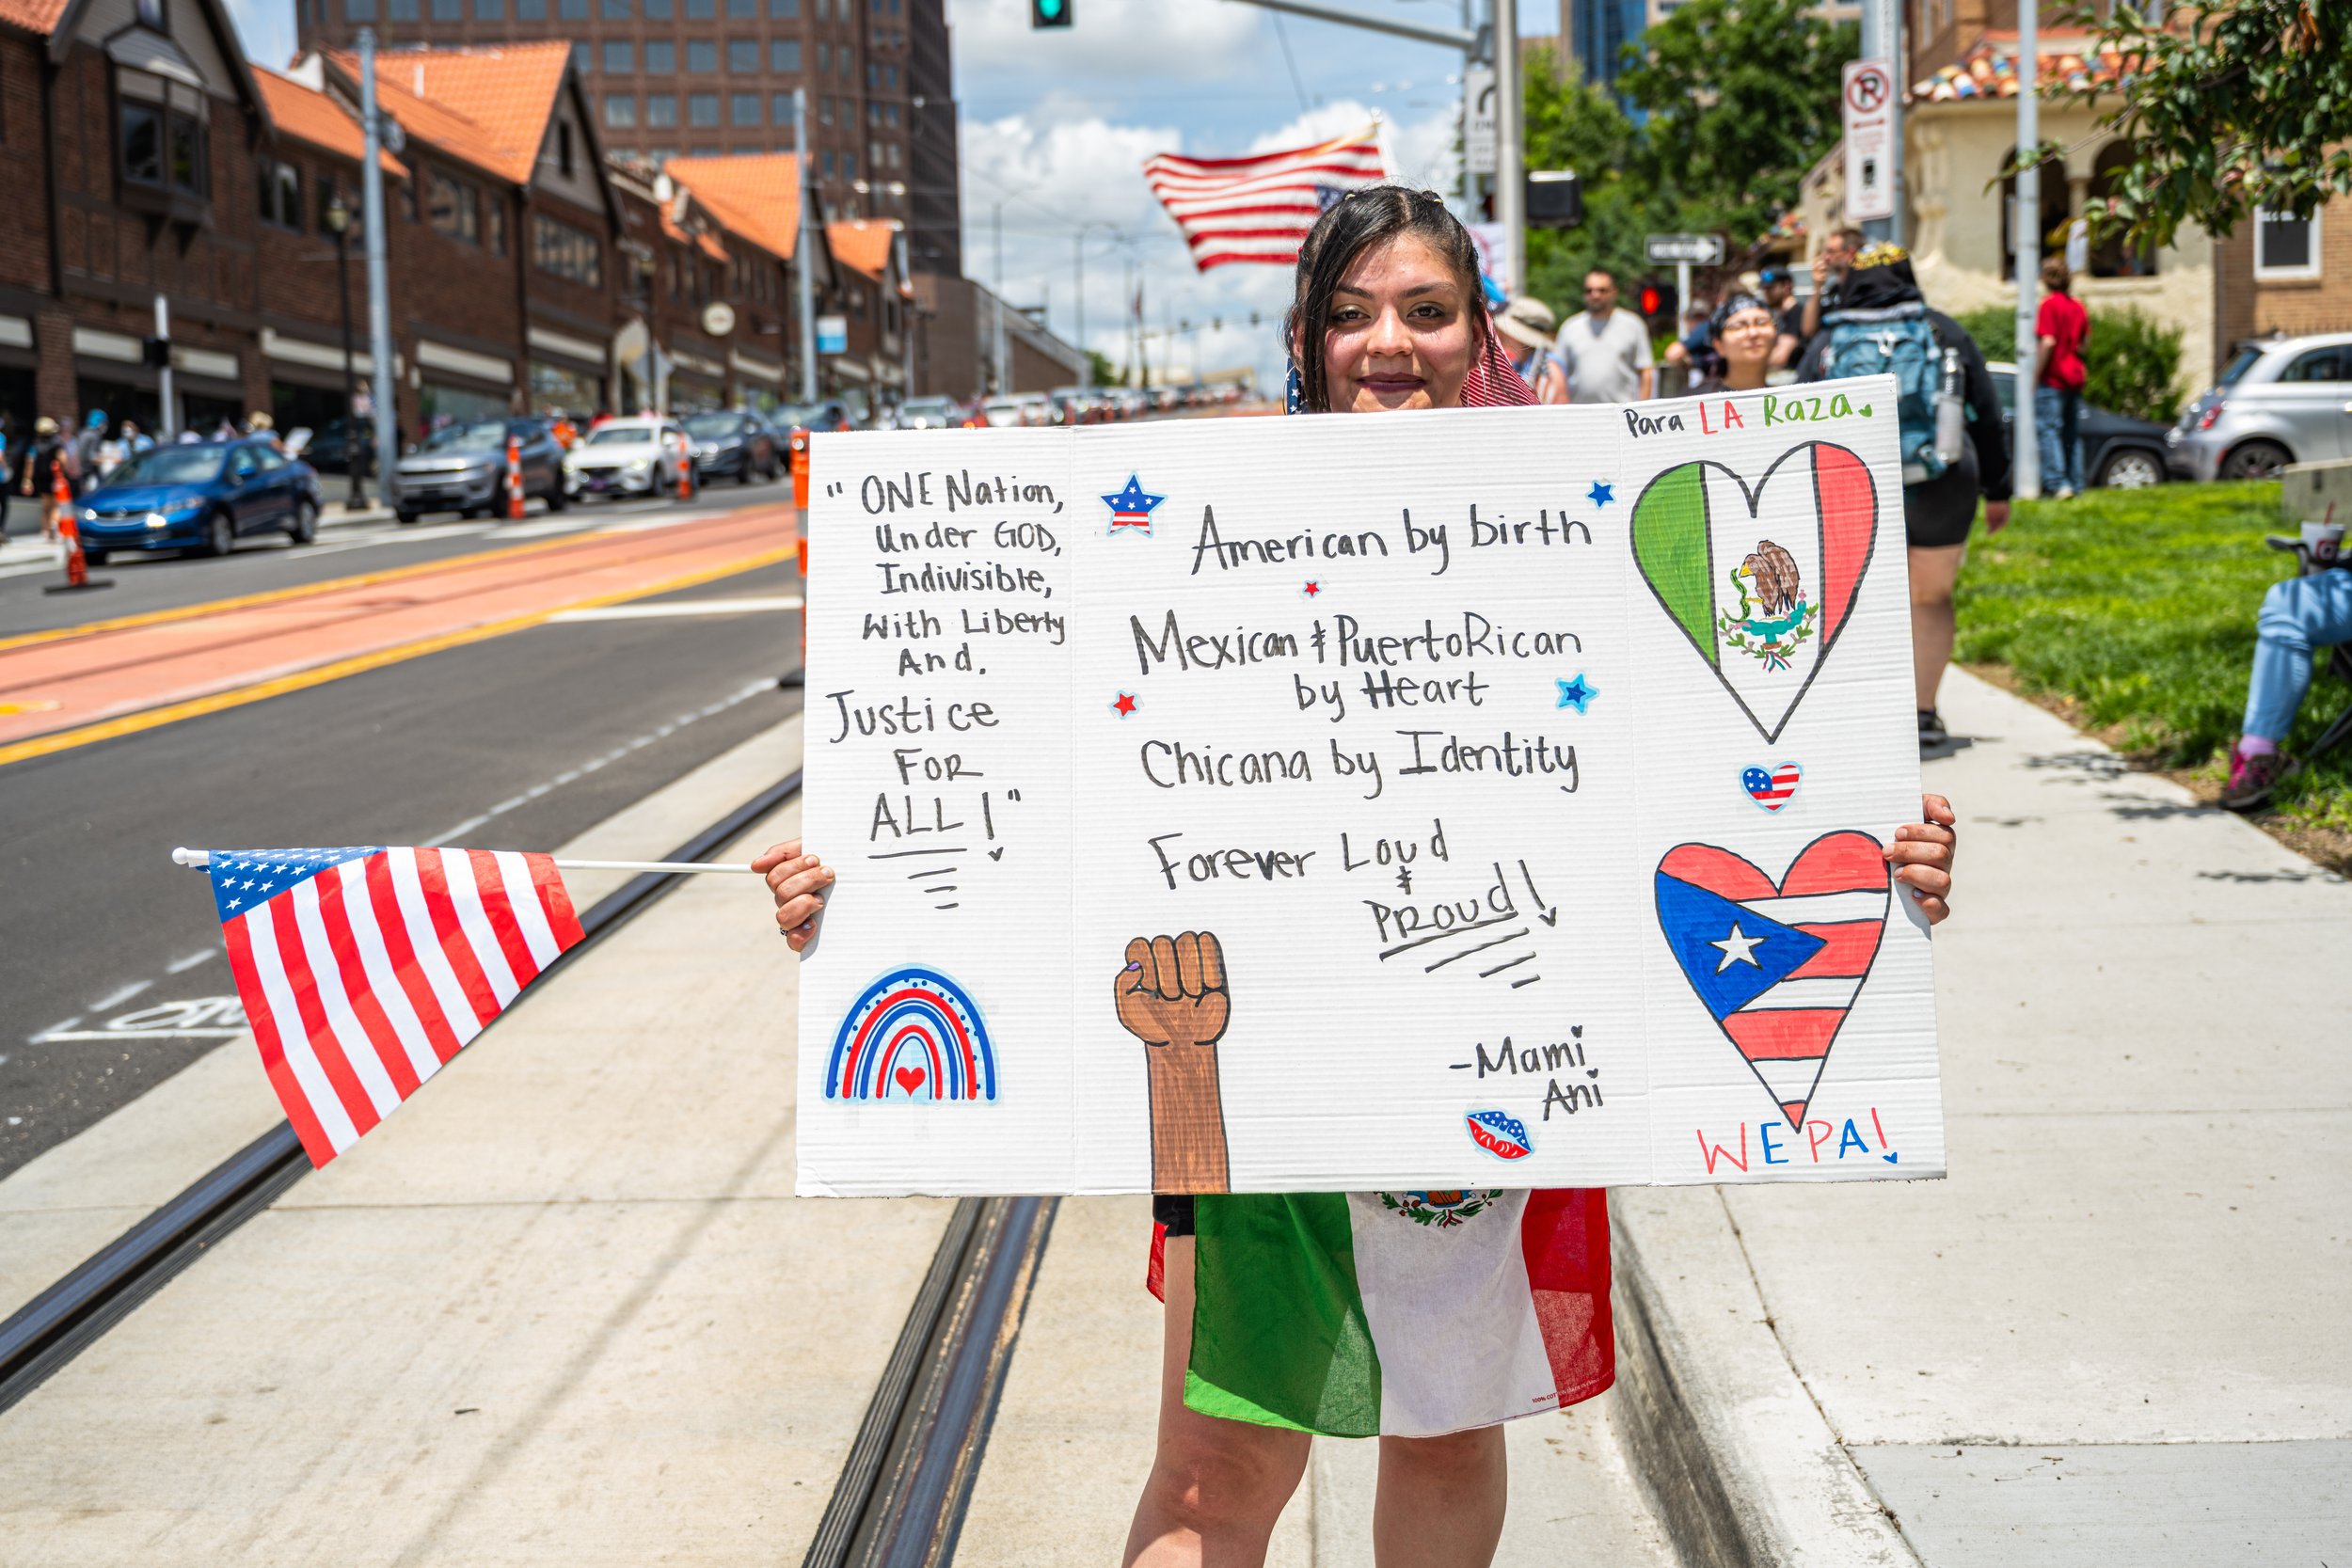 " ONE Nation,
Under GOD,
Indivisible,
With Liberty
And.
Justice
FOR
ALL!"
American by birth
Mexican & PuertoRican
by Heart
Chicana by Identity
Forever Loud
&
Proud!
-Mami
Ani
Para LA Raza.
WEPA!